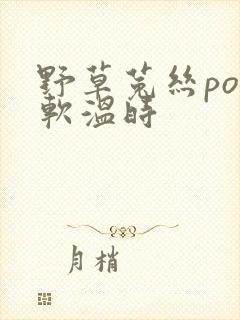 野草菟絲po
軟溫時
月梢